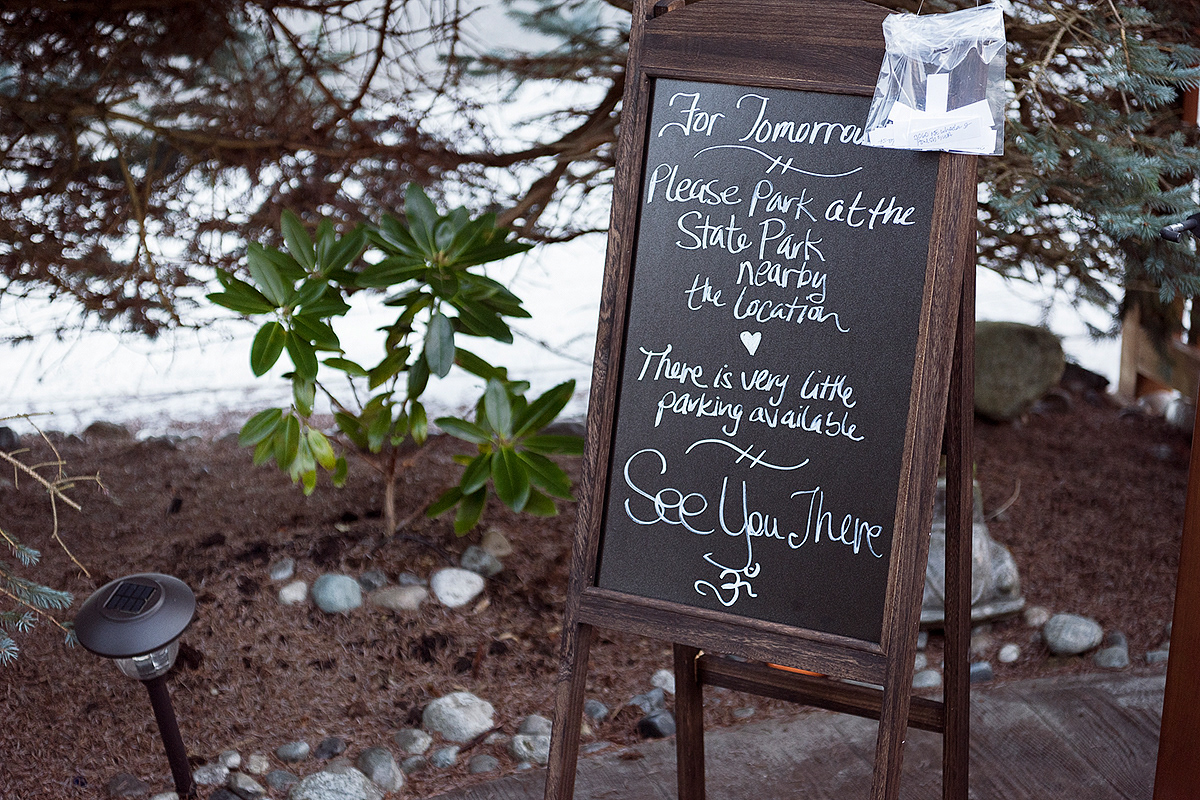 For Tomorrow
Please Park at the
State Park
nearby
the location
There is very little
parking available
See You There
ॐ